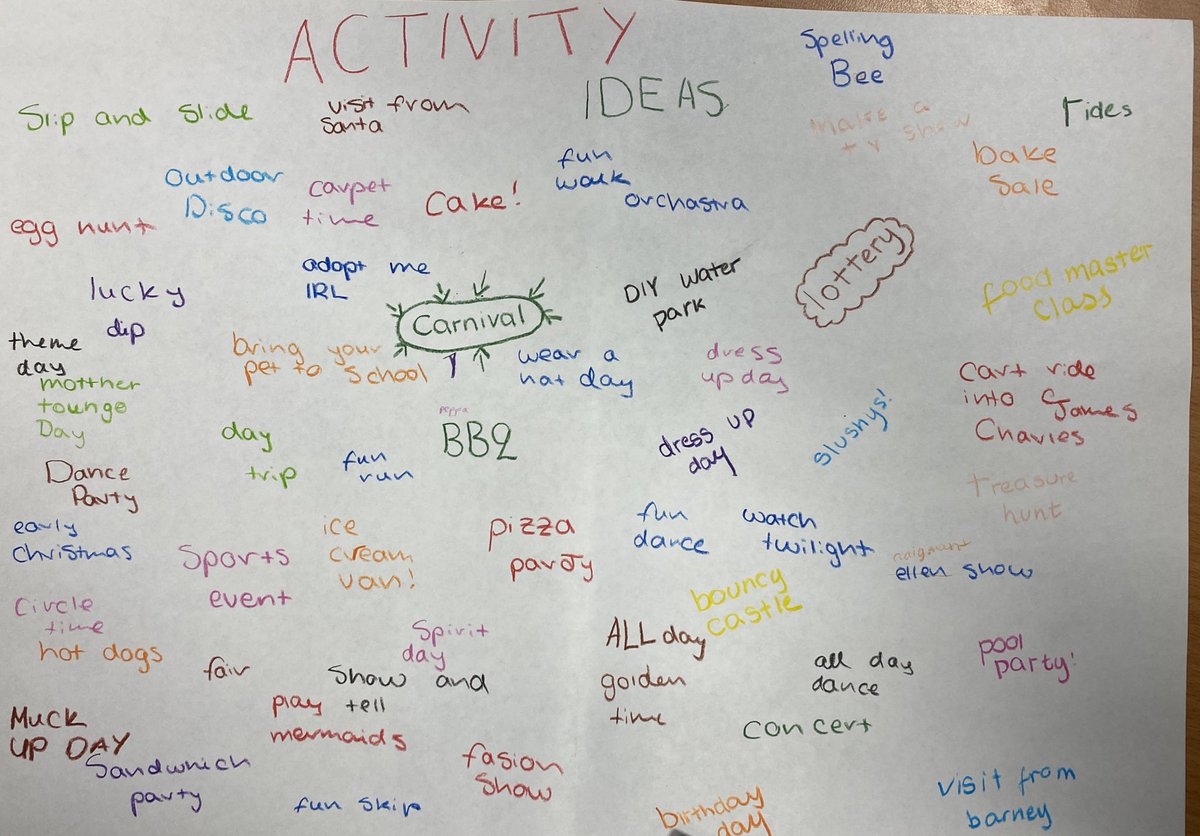 ACTIVITY
IDEAS
Spelling
Bee
Slip and slide
visit from
Santa
make a
tv show
rides
bake
sale
Outdoor
Disco
carpet
time
cake!
fun
walk
orchastra
egg hunt
lucky
dip
adopt me
IRL
Carnival
DIY water
park
lottery
food master
class
theme
day
bring your
pet to school
wear a
hat day
dress
up day
motther
tounge
Day
day
trip
fun
run
peppa
BBQ
dress up
day
slushys!
cart ride
into James
Charles
Dance
Party
early
christmas
Sports
event
ice
cream
van!
pizza
party
fun
dance
watch
twilight
treasure
hunt
ellen show
bouncy
castle
Circle
time
hot dogs
fair
Spirit
day
Show and
tell
play
mermaids
ALL day
golden
time
all day
dance
pool
party!
concert
Muck
UP DAY
Sandwhich
party
fun skip
fasion
show
birthday
day
visit from
barney